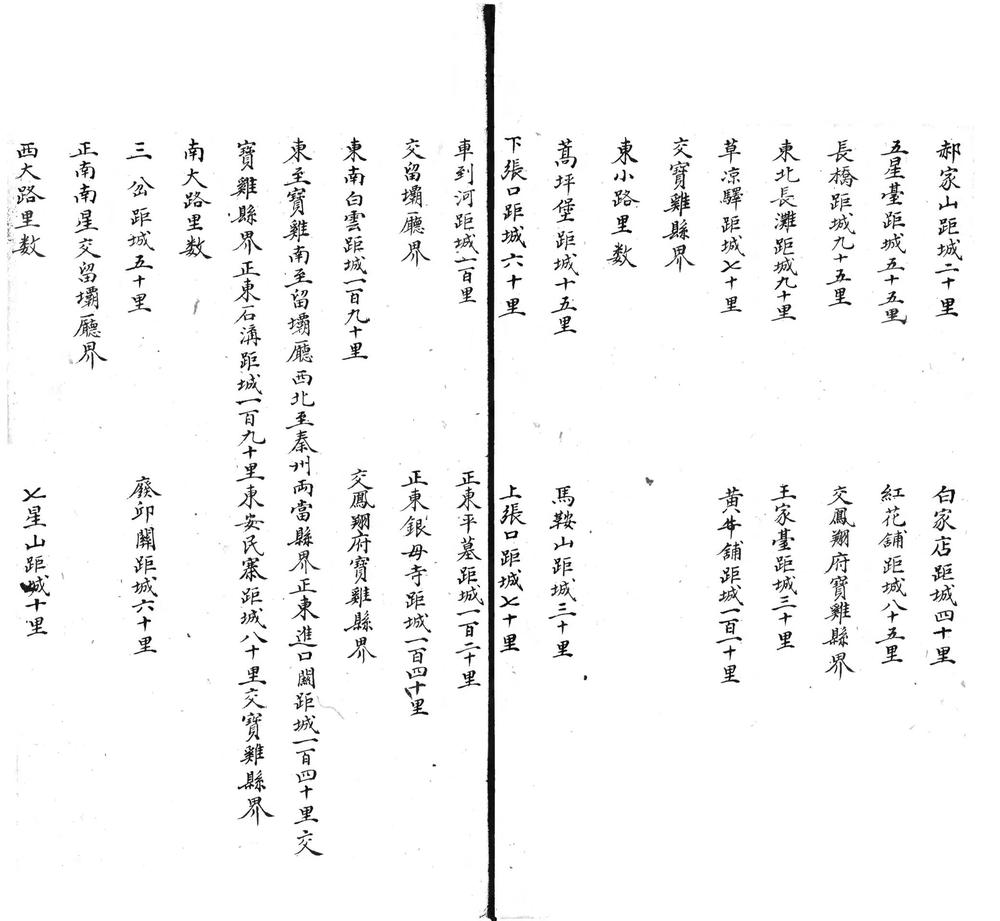 郝家山距城二十里　白家店距城四十里
五星臺距城五十五里　紅花舖距城八十五里
長橋距城九十五里　交鳳翔府寶雞縣界
東北長灘距城九十里　王家臺距城三十里
草凉驛距城七十里　黃牛舖距城一百一十里
交寶雞縣界
東小路里数
蒿坪堡距城十五里　馬鞍山距城三十里
下張口距城六十里　上張口距城七十里
車到河距城一百里　正東平墓距城一百二十里
交留壩廳界　正東銀母寺距城一百四十里
東南白雲距城一百九十里　交鳳翔府寶雞縣界
東至寶雞南至留壩廳西北至秦州両當縣界正東進口關距城一百四十里交
寶雞縣界正東石溝距城一百九十里東安民寨距城八十里交寶雞縣界
南大路里数
三岔距城五十里　廢邱關距城六十里
正南南星交留壩廳界
西大路里数　七星山距城十里